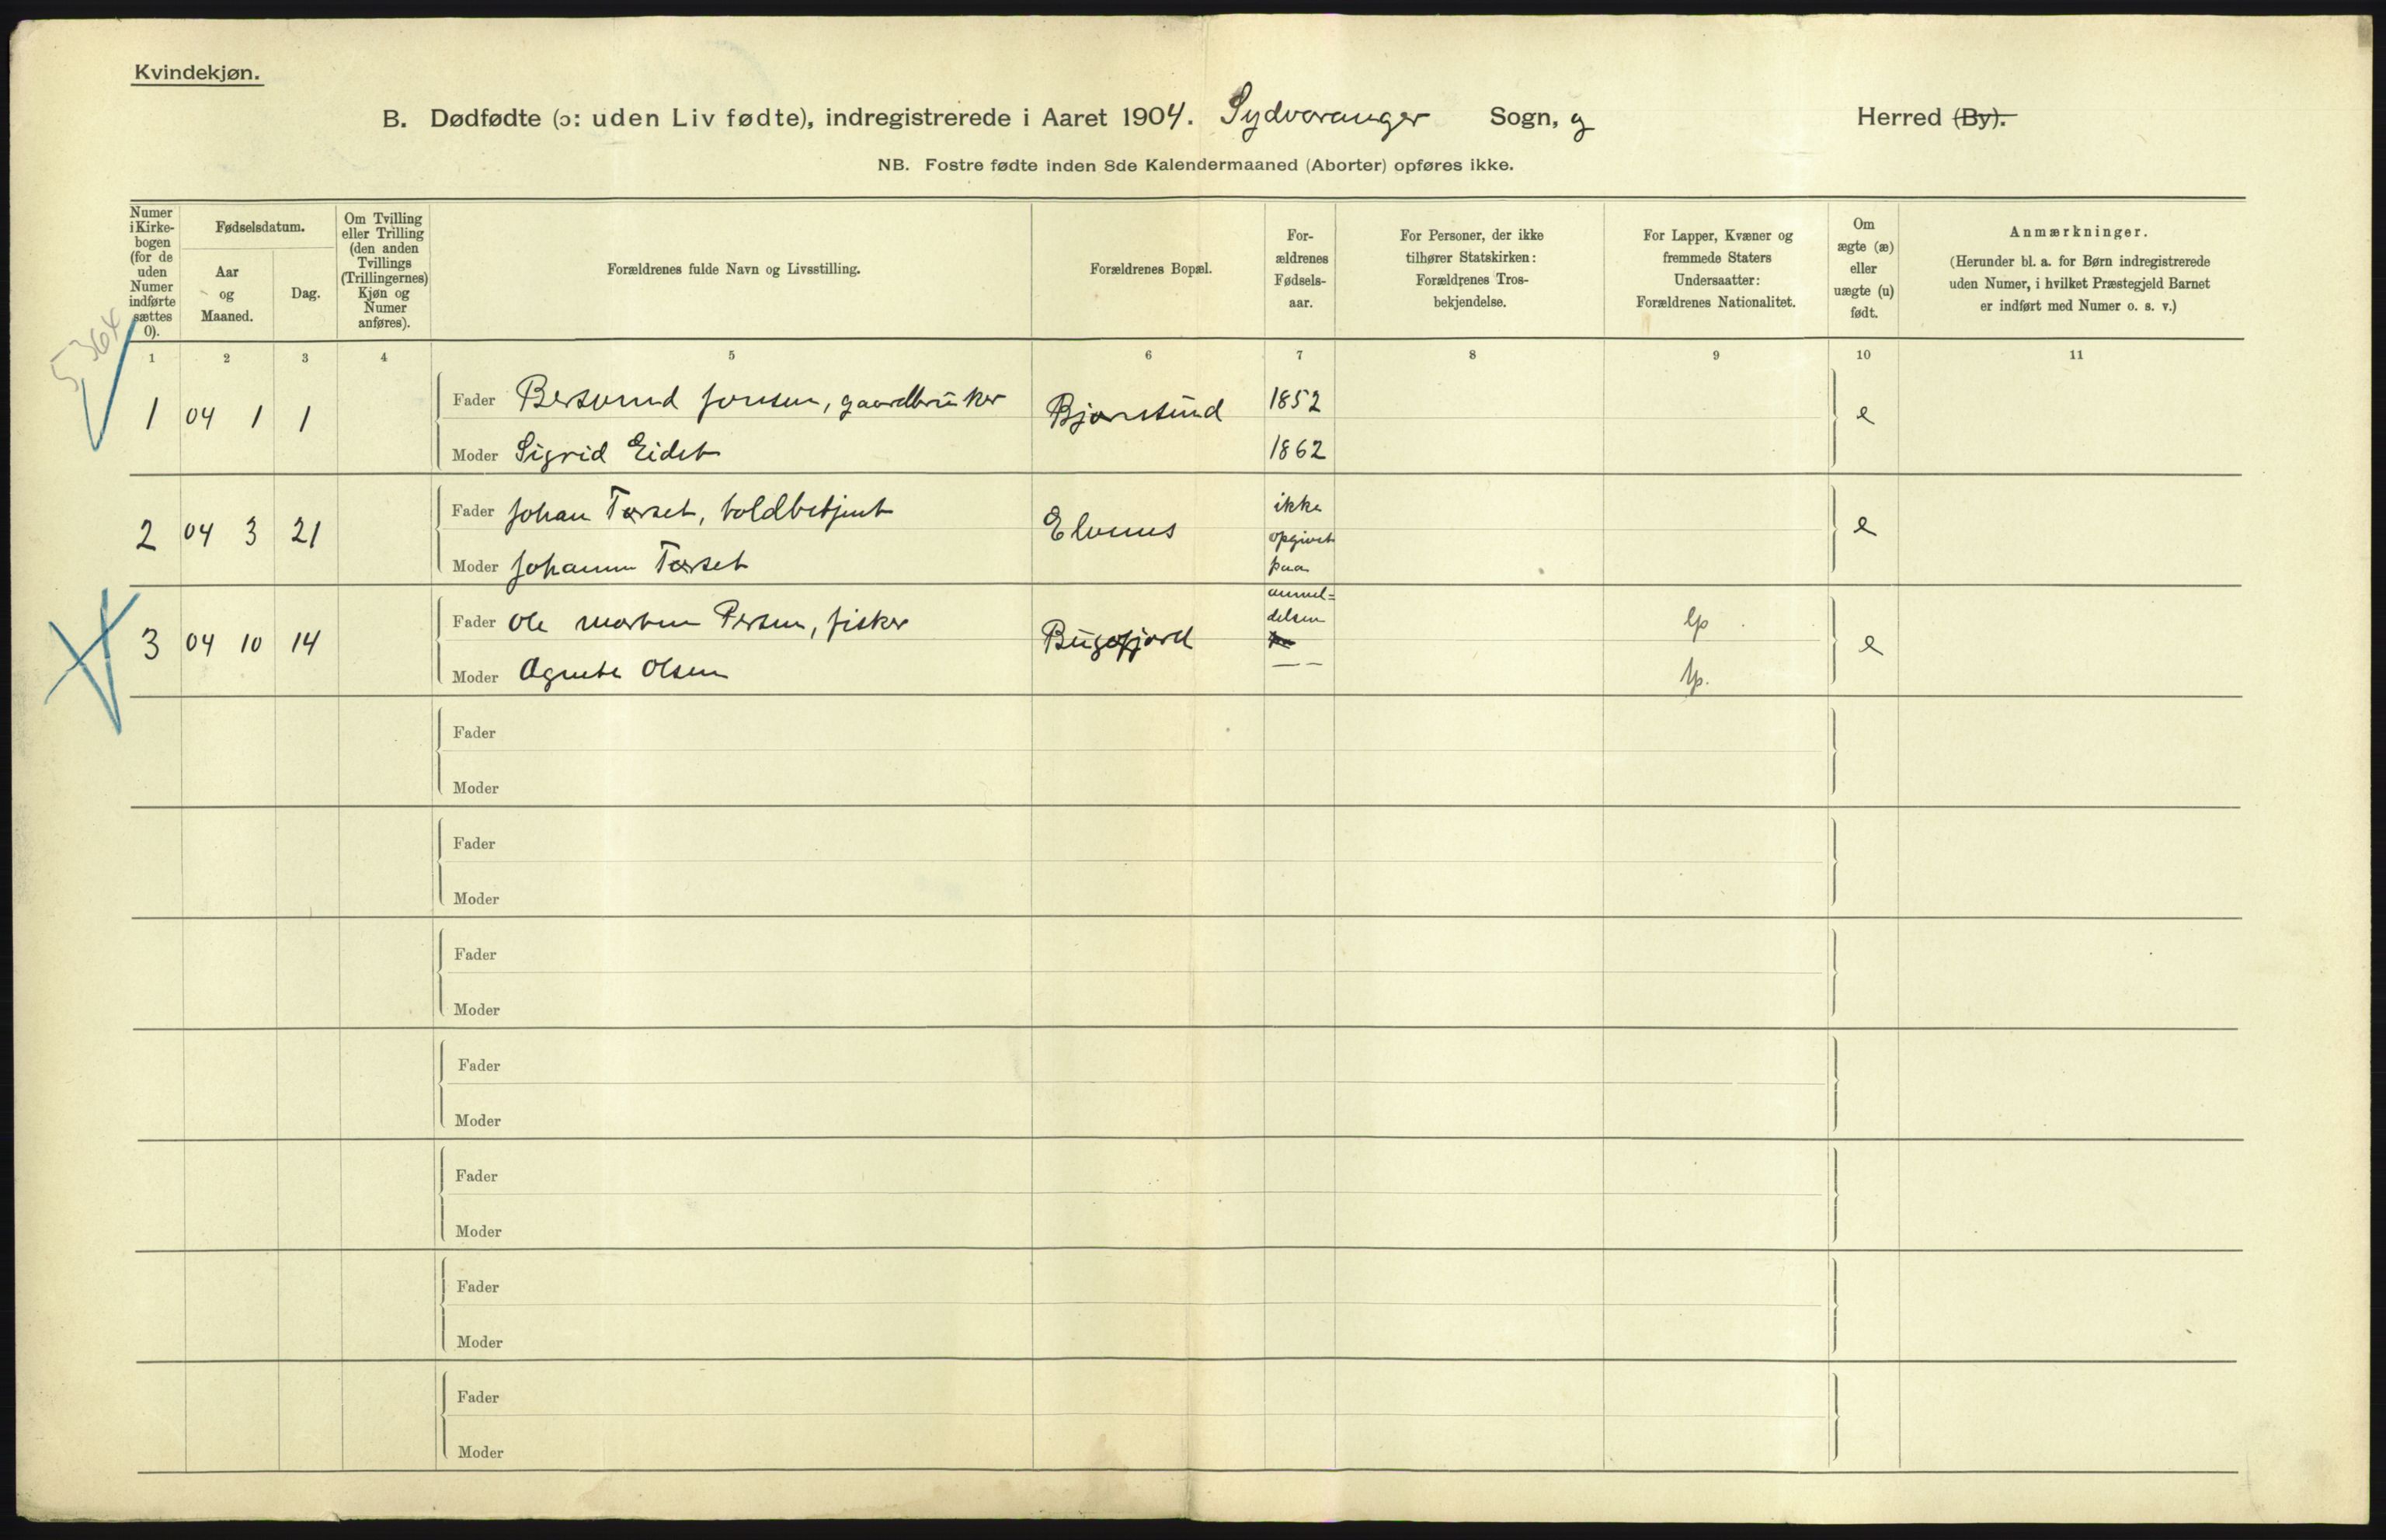 Kvindekjøn.
B. Dødfødte (ɔ: uden Liv fødte), indregistrerede i Aaret 1904. Sydvaranger Sogn, og Herred (By).
NB. Fostre fødte inden 8de Kalendermaaned (Aborter) opføres ikke.
Numer i Kirkebogen (for de uden Numer indførte sættes 0).
Fødselsdatum.
Aar og Maaned.
Dag.
Om Tvilling eller Trilling (den anden Tvillings (Trillingernes) Kjøn og Numer anføres).
Forældrenes fulde Navn og Livsstilling.
Forældrenes Bopæl.
For-ældrenes Fødsels-aar.
For Personer, der ikke tilhører Statskirken: Forældrenes Tros-bekjendelse.
For Lapper, Kvæner og fremmede Staters Undersaatter: Forældrenes Nationalitet.
Om ægte (æ) eller uægte (u) født.
Anmærkninger.
(Herunder bl. a. for Børn indregistrerede uden Numer, i hvilket Præstegjeld Barnet er indført med Numer o. s. v.)
1 2 3 4 5 6 7 8 9 10 11
5364
1 04 1 1 Fader Bersvend Jonsen, gaardbruker Bjørnsund 1852 e
Moder Sigrid Eidet 1862
2 04 3 21 Fader Johan Tørset, toldbetjent Elvenes ikke opgivet paa e
Moder Johanna Tørset
3 04 10 14 Fader Ole Morten Persen, fisker Bugøfjord anmel=delsen lp e
Moder Agnete Olsen — — lp.
Fader
Moder
Fader
Moder
Fader
Moder
Fader
Moder
Fader
Moder
Fader
Moder
Fader
Moder